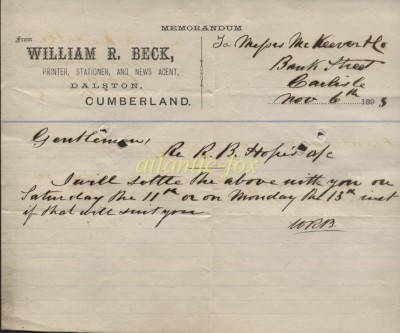 MEMORANDUM
From
WILLIAM R. BECK,
PRINTER, STATIONER, AND NEWS AGENT,
DALSTON,
CUMBERLAND.
To Messrs McKeever & Co
Bank Street
Carlisle
Nov 6th 1893
Gentlemen,
Re R. B. Hope's a/c
atlantic-fox
I will settle the above with you on
Saturday the 11th or on Monday the 13th inst
if that will suit you
WRB.